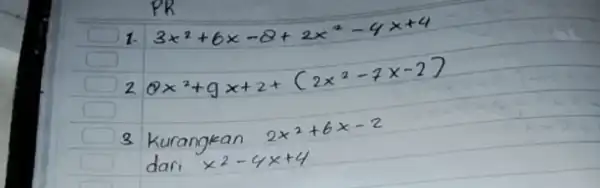 PR
1. 3x² + 6x - 8 + 2x² - 4x + 4
2 8x² + 9x + 2 + (2x² - 7x - 2)
3 Kurangkan 2x² + 6x - 2
dari x² - 4x + 4